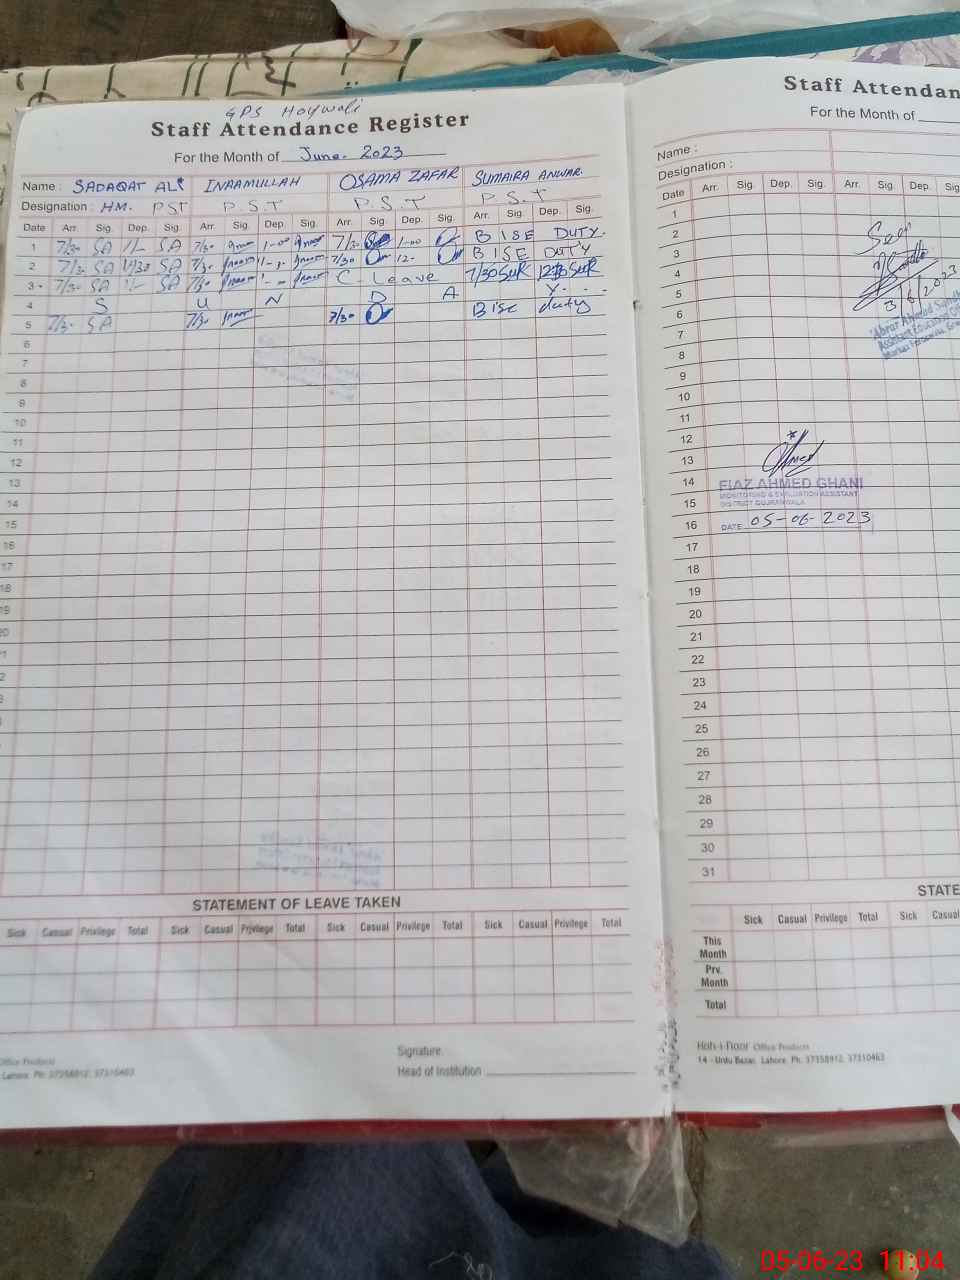 GPS Hoywali
Staff Attendance Register
For the Month of June. 2023
Name : SADAQAT ALI INAAMULLAH OSAMA ZAFAR SUMAIRA ANWAR.
Designation : HM. PST P.S.T P.S.T P.S.T
Date Arr. Sig. Dep. Sig. Arr. Sig. Dep. Sig. Arr. Sig. Dep. Sig. Arr. Sig. Dep. Sig.
1 7/30 SA 1/- SA 7/30 1-00 7/30 1-00 BISE DUTY.
2 7/30 SA 11/30 SA 7/30 7/30 12- BISE DUTY
3 7/30 SA 1/- SA 7/30 C. Leave 7/30 SUR 12:30 SUR
4 S U N D A Y . . .
5 7/30 SA 7/30 7/30 Bise duty
6
7
8
9
10
11
12
13
14
15
16
17
18
19
20
STATEMENT OF LEAVE TAKEN
Sick Casual Privilege Total Sick Casual Privilege Total Sick Casual Privilege Total Sick Casual Privilege Total
Signature.
Head of Institution
Office Products
Lahore. Ph: 37358912, 37310463
Staff Attendan
For the Month of
Name :
Designation :
Date Arr. Sig. Dep. Sig. Arr. Sig. Dep. Sig.
1
2
3
4
5
6
7
8
9
10
11
12
13
14
15
16
17
18
19
20
21
22
23
24
25
26
27
28
29
30
31
Seen
3/6/2023
Abrar Ahmad
Assistant Education
FIAZ AHMED GHANI
MONITORING & EVALUATION ASSISTANT
DISTRICT GUJRANWALA
DATE 05-06-2023
STATE
Sick Casual Privilege Total Sick Casual
This Month
Prv. Month
Total
Koh-i-Noor Office Products
14 - Urdu Bazar, Lahore. Ph: 37358912, 37310463
05-06-23 11:04